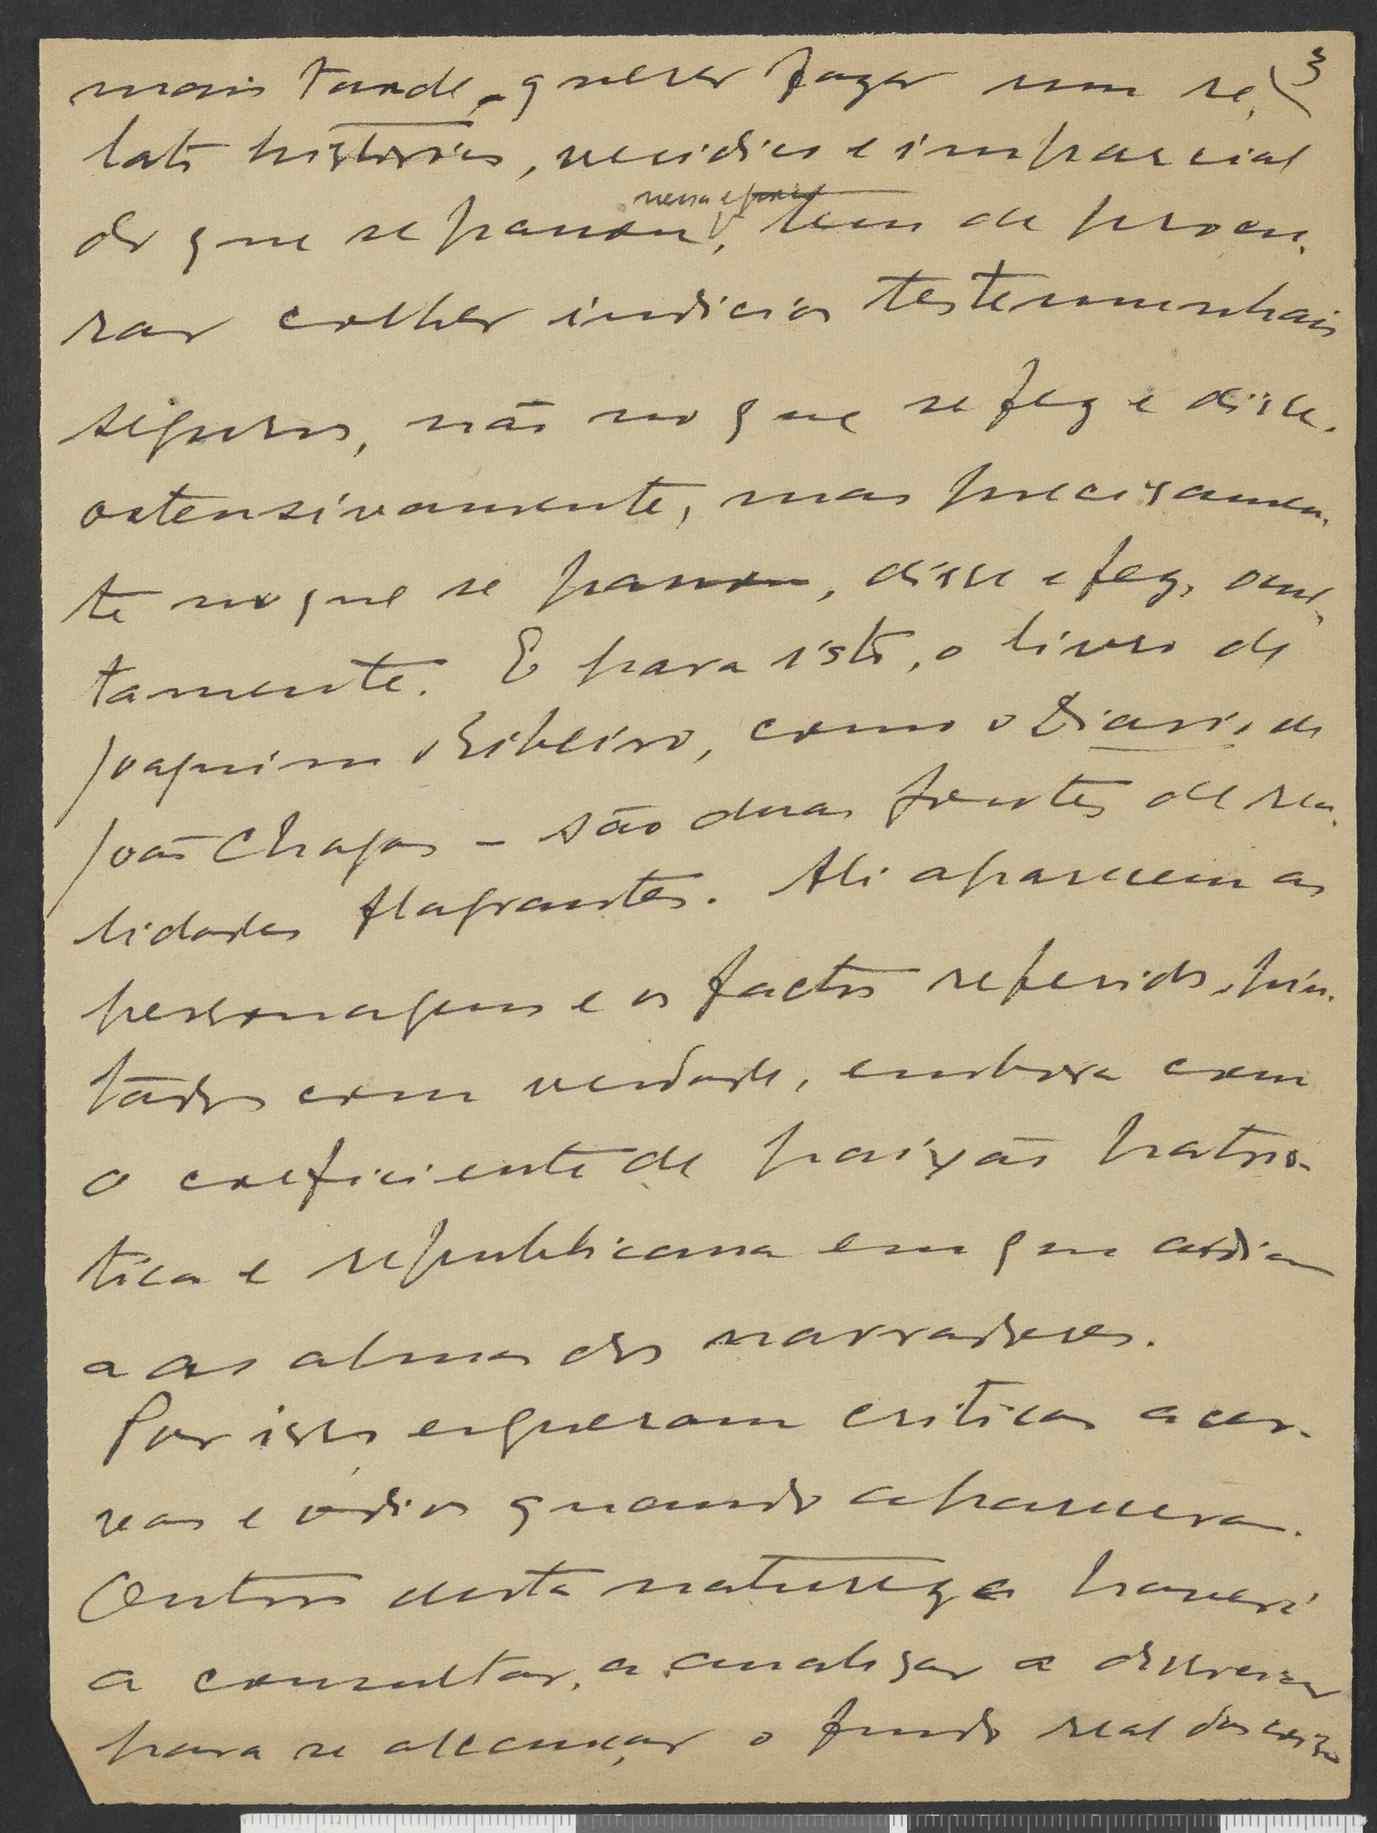 3
mais tarde, quiser fazer um re-
lato historico, veridico e imparcial
do que se passou nessa epoca, tem de procu-
rar colher indicios testemunhais
seguros, não no que se fez e disse
ostensivamente, mas precisamen-
te no que se passou, disse e fez, ocul-
tamente. E para isto, o livro de
Joaquim Ribeiro, como o Diario de
João Chagas – são duas fontes de rea-
lidades flagrantes. Ali aparecem as
personagens e os factos referidos, pin-
tados com verdade, embora com
o coeficiente de paixão patrio-
tica e republicana em que ardiam
as almas dos narradores.
Por isso ergueram criticas acer-
bas e odios quando apareceram.
Outros desta natureza haverá
a consultar, a analisar e
para se alcançar o fundo real das coisas